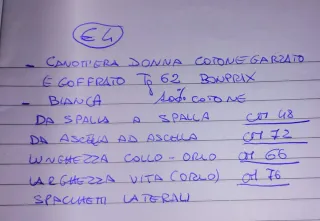 € 4
- CANOTTIERA DONNA COTONE GARZATO
E GOFFRATO Tg 62 BONPRIX
- BIANCA 100% COTONE
DA SPALLA A SPALLA cm 48
DA ASCELLA AD ASCELLA cm 72
LUNGHEZZA COLLO-ORLO cm 66
LARGHEZZA VITA (ORLO) cm 76
SPACCHETTI LATERALI